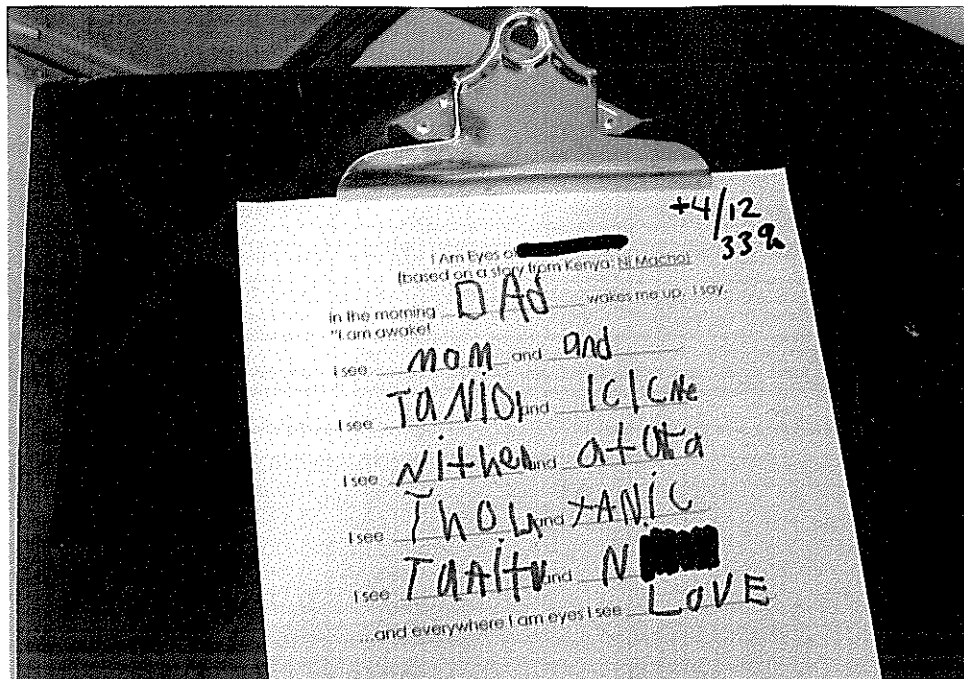 +4/12
33%
I Am Eyes of
(based on a story from Kenya: Ni Macho)
In the morning DAd wakes me up. I say,
"I am awake!
I see mom and and
I see TANIO and ICICNe
I see Nithen and atata
I see ThoL and TANiC
I see TaAltu and N
...and everywhere I am eyes I see LoVE